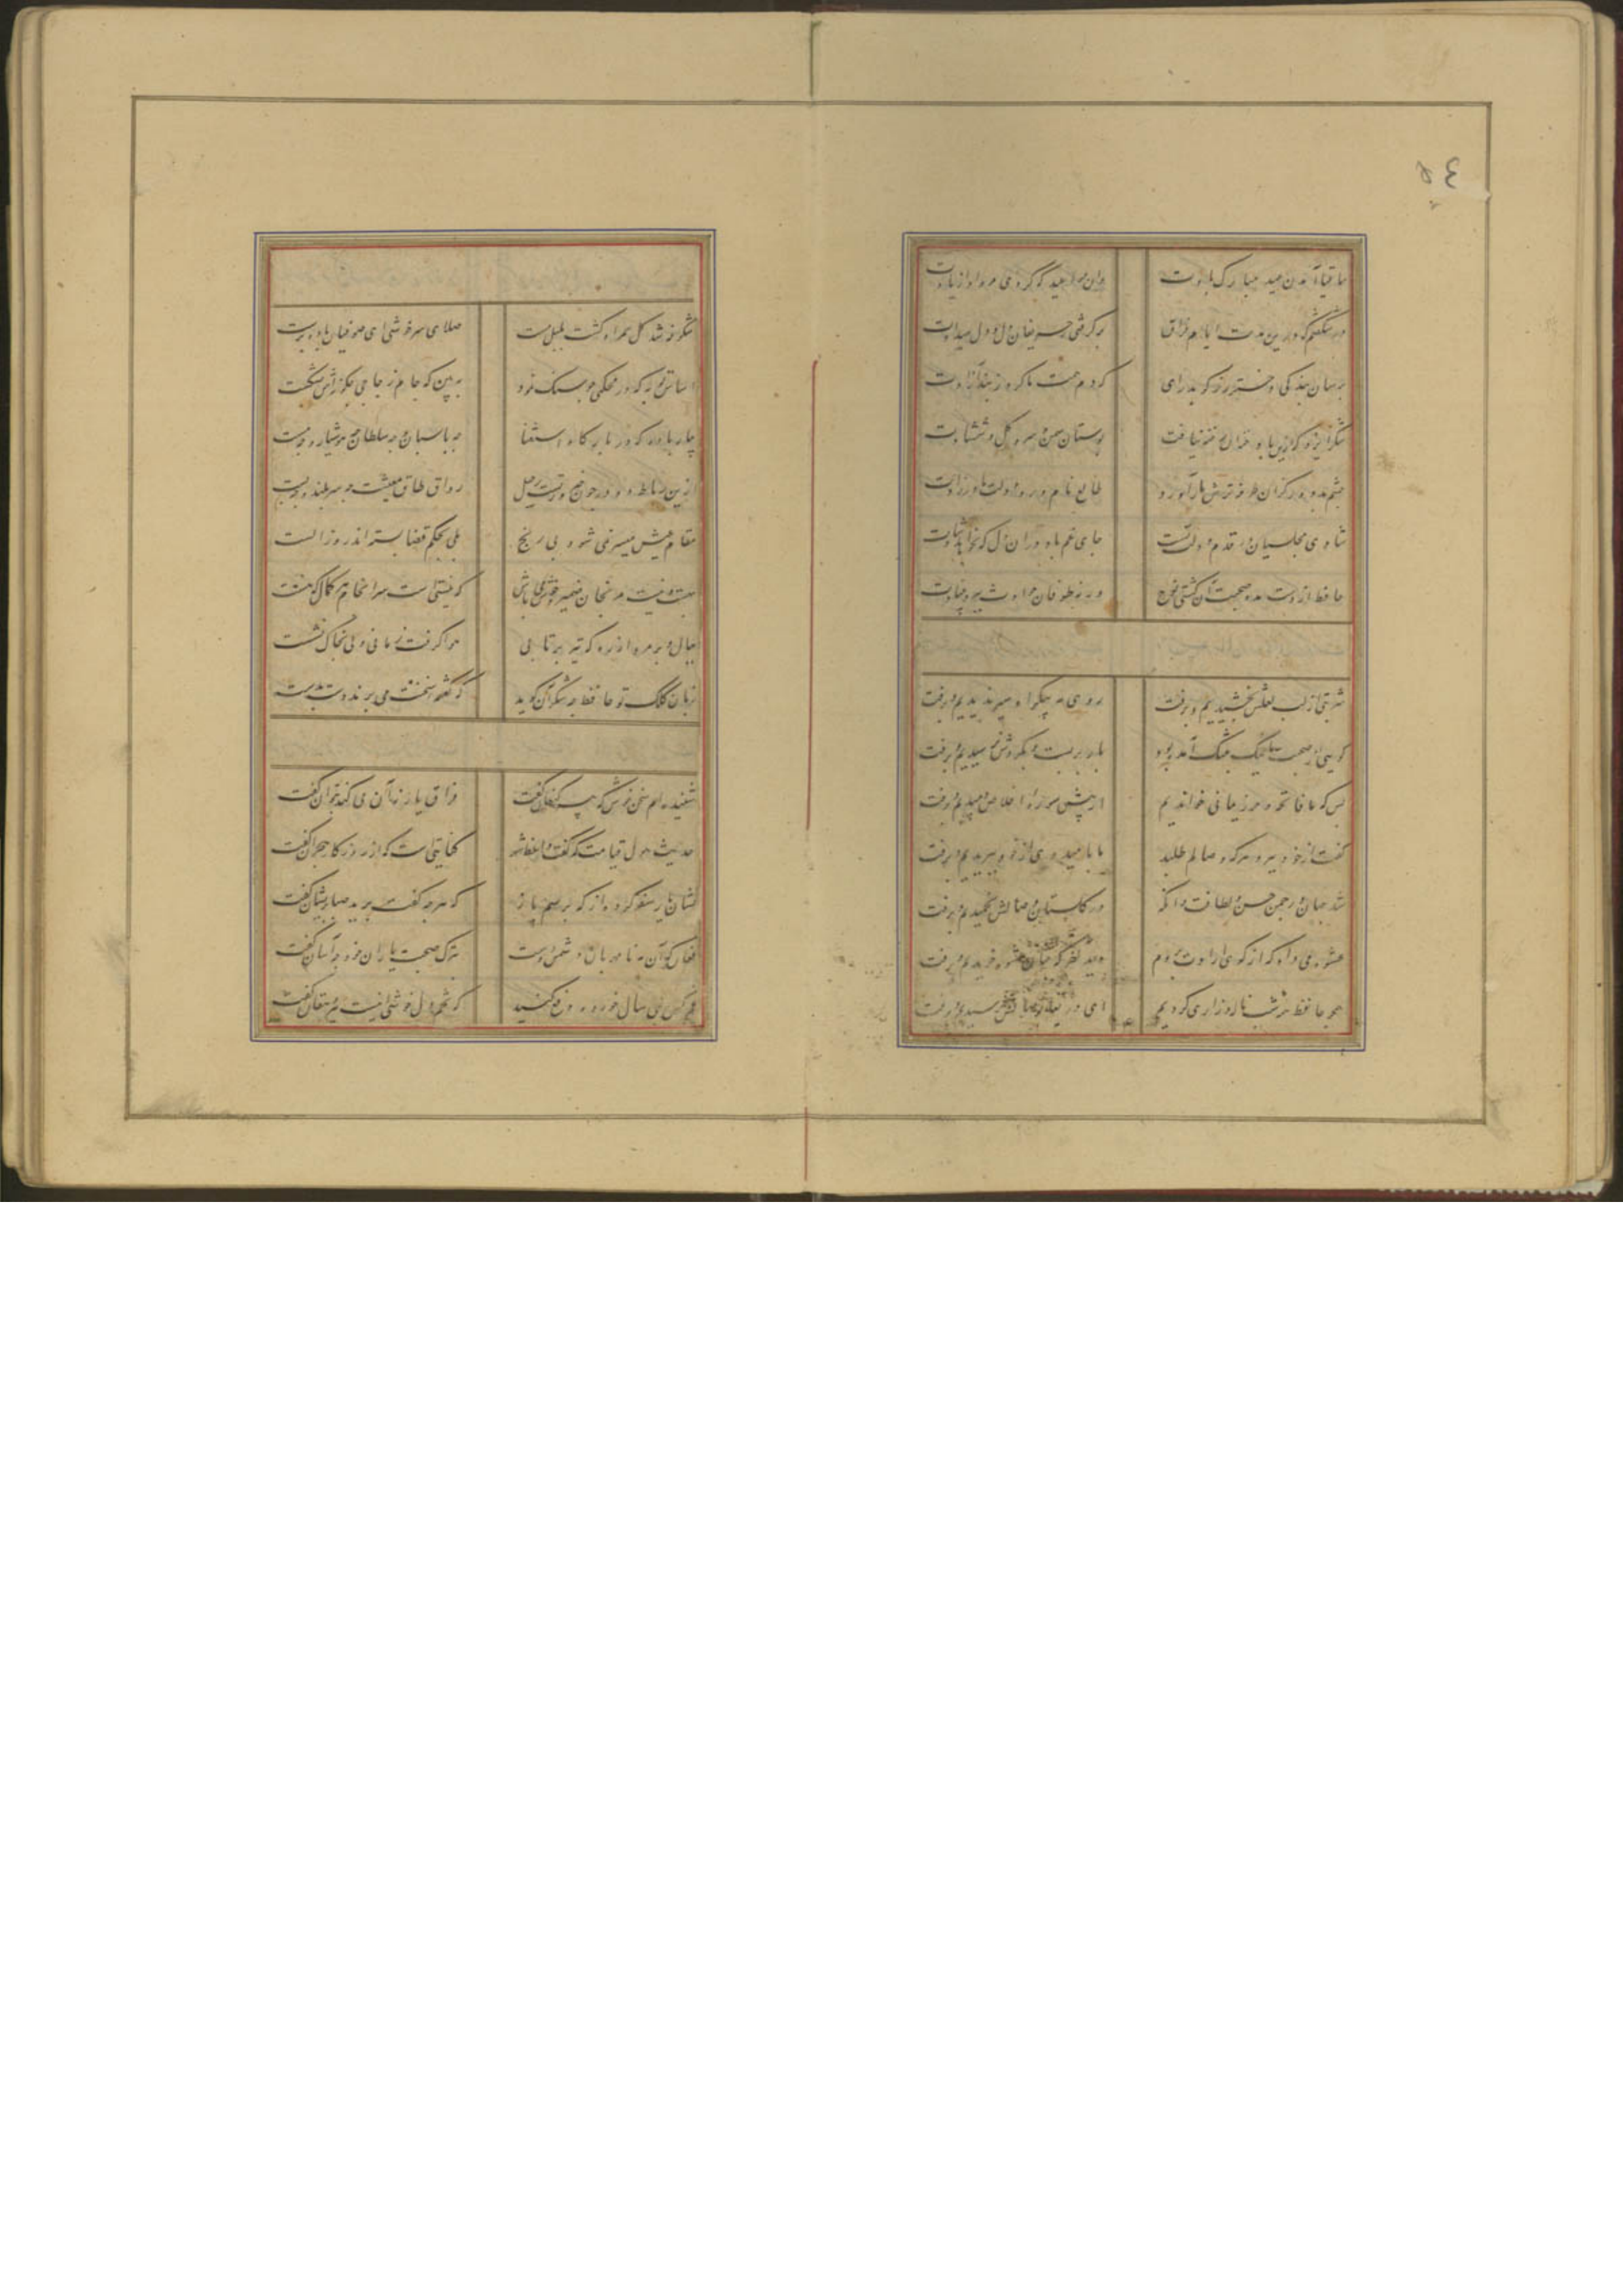 ٤٥
ساقیا آمدن عید مبارک بادت وان مواعید که کردی مرواد از یادت
در شگفتم که درین مدت ایام فراق برگرفتی ز حریفان دل و دل میدادت
برسان بندگی دختر رز گو بدر آی که دم همت ما کرد ز بند آزادت
شکر ایزد که ازین باد خزان رخنه نیافت بوستان سمن و سرو و گل و شمشادت
چشم بد دور کزان طرفه ترش باز آورد طالع نامور و دولت مادرزادت
شادی مجلسیان در قدم دولت تست جای غم باد هر آن دل که نخواهد شادت
حافظ از دست مده صحبت آن کشتی نوح ورنه طوفان حوادث ببرد بنیادت
شربتی از لب لعلش نچشیدیم و برفت روی مه پیکر او سیر ندیدیم و برفت
گویی از صحبت ما نیک بتنگ آمده بود بار بربست و بگردش نرسیدیم و برفت
بس که ما فاتحه و حرز یمانی خواندیم از پیش سوره اخلاص دمیدیم و برفت
گفت از خود ببرد هر که وصالم طلبد ما بامید وی از خود ببریدیم و برفت
شد چمان در چمن حسن و لطافت و انگه در گلستان وصالش نچمیدیم و برفت
عشوه می داد که از کوی ارادت نروم دید آخر که چنان عشوه خریدیم و برفت
همچو حافظ همه شب ناله و زاری کردیم ای دریغا بوداعش نرسیدیم و برفت
شکوفه شد گل حمرا و گشت بلبل مست صلای سرخوشی ای صوفیان باده پرست
اساس توبه که در محکمی چو سنگ نمود ببین که جام زجاجی چگونه اش بشکست
بیار باده که در بارگاه استغنا چه پاسبان و چه سلطان چه هوشیار و چه مست
ازین رباط دو در چون ضرورتست رحیل رواق طاق معیشت چه سربلند و چه پست
مقام عیش میسر نمی شود بی رنج بلی بحکم قضا بسته اند روز الست
بهست و نیست مرنجان ضمیر و خوش دل باش که نیستی است سرانجام هر کمال که هست
ببال و پر مرو از ره که تیر پرتابی هوا گرفت زمانی ولی بخاک نشست
زبان کلک تو حافظ چه شکر آن گوید که گفته سخنت می برند دست بدست
شنیده ام سخنی خوش که پیر کنعان گفت فراق یار نه آن می کند که بتوان گفت
حدیث هول قیامت که گفت واعظ شهر کنایتی است که از روزگار هجران گفت
نشان یار سفر کرده از که پرسم باز که هر چه گفت برید صبا پریشان گفت
فغان که آن مه نامهربان دشمن دوست بترک صحبت یاران خود چه آسان گفت
غم کهن بمی سال خورده دفع کنید که تخم خوش دلی اینست پیر دهقان گفت